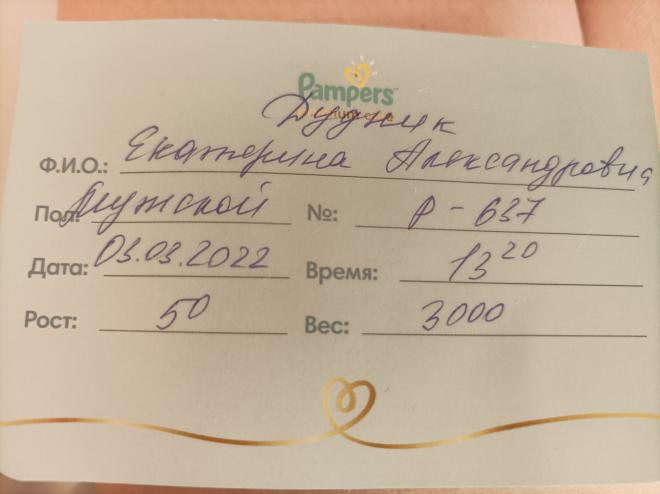 Pampers
Дудник
Ф.И.О.: Екатерина Александровна
Пол: Мужской №: Р-637
Дата: 03.03.2022 Время: 13 20
Рост: 50 Вес: 3000